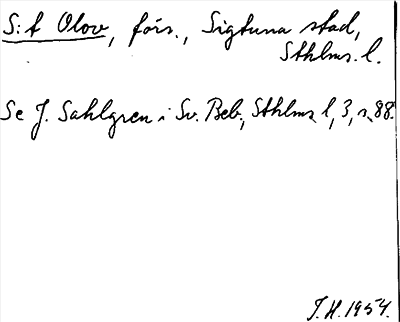 S:t Olov, förs., Sigtuna stad,
Sthlms. l.
Se J. Sahlgren i Sv. Beb., Sthlms l, 3, s. 88.
J. H. 1954.